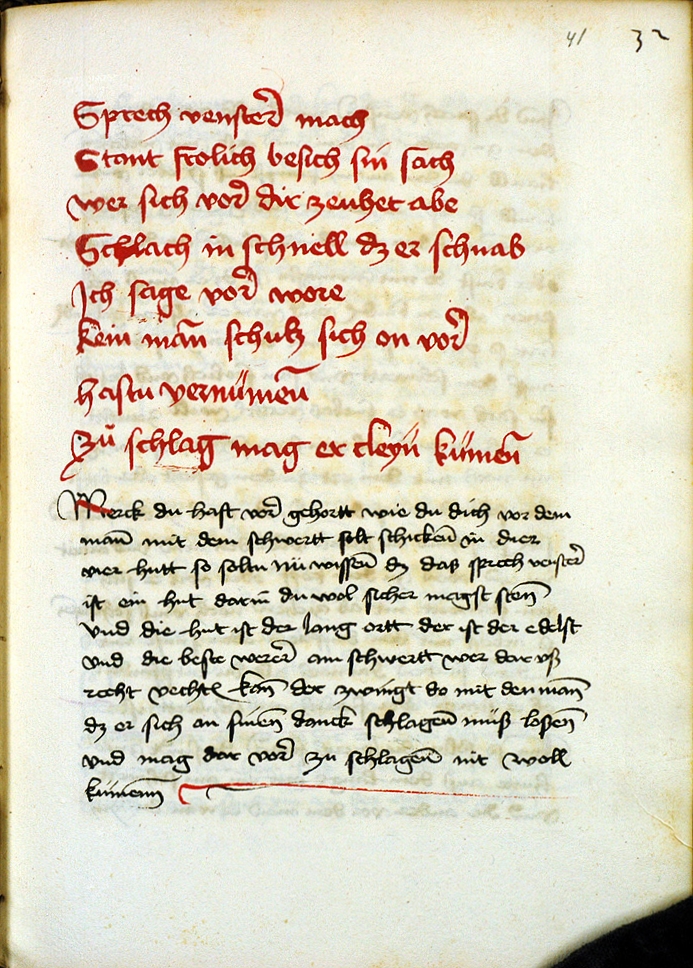 41 32
Sprech venster mach
Stant frolich besich sin sach
wer sich vor dir zeuhet abe
Schlach in schnell dz er schnab
Ich sage vor wore
kein man schutz sich on vor
hastu vernümen
Zů schlag mag er cleyn kümen
Merck du hast vor gehortt wie du dich vor dem
mann mit dem schwertt solt schicken in dier
vier hutt so soltu nü wissen dz daß sprech venster
ist ein hut darin du wol sicher magst sten
Vnd die hut ist der lang ortt der ist der edelst
vnd die beste werer am schwertt wer dar vß
recht vechten kan der zwingt do mit den man
dz er sich an sinen danck schlagen müß loßen
vnd mag dar vor zu schlagen nit woll
kümenn